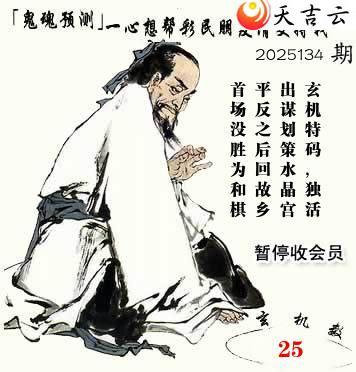 天吉云
「鬼魂预测」一心想帮彩民朋
2025134 期
玄机特码，独活
出谋划策水晶宫
平反之后回故乡
首场没胜为和棋
暂停收会员
玄机
25